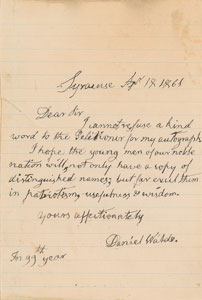 Syracuse Apr 19. 1861
Dear Sir
I cannot refuse a kind
word to the Petitioner for my autograph
I hope the young men of our noble
nation will, not only have a copy of
distinguished names, but far excel them
in patriotism, usefulness & wisdom.
Yours affectionately
Daniel Waldo.
In 99th year